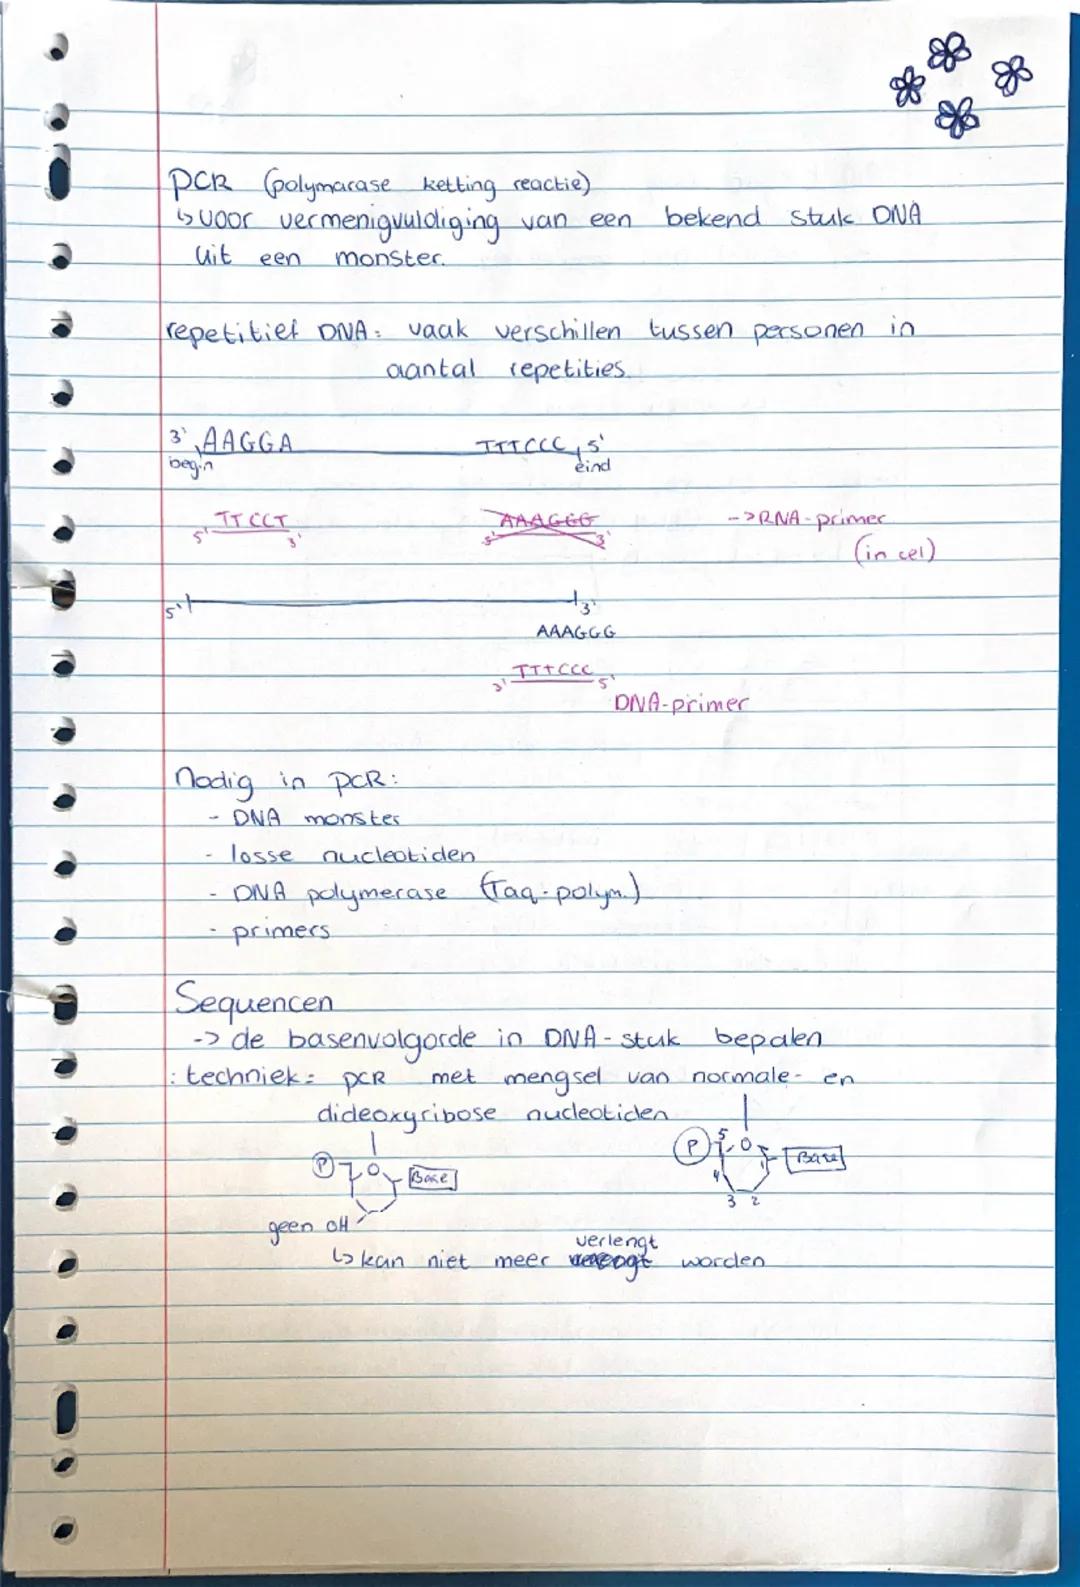 PCR (polymarase ketting reactie)
↳ voor vermenigvuldiging van een bekend stuk DNA
uit een monster.
repetitief DNA: vaak verschillen tussen personen in
aantal repetities.
3' AAGGA TTTCCC 5'
begin eind
5' TTCCT 3' 5' AAAGGG 3' -> RNA-primer
(in cel)
5' 3'
AAAGGG
3' TTTCCC 5'
DNA-primer
Nodig in PCR:
- DNA monster
- losse nucleotiden
- DNA polymerase (Taq-polym.)
- primers
Sequencen
-> de basenvolgorde in DNA-stuk bepalen
: techniek: PCR met mengsel van normale- en
dideoxyribose nucleotiden
P O Base P 5 O 1 Base
4 3 2
geen OH
verlengt
↳ kan niet meer worden